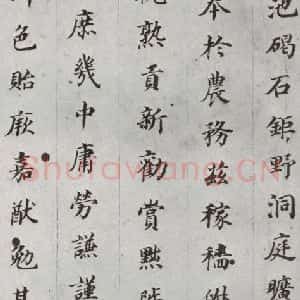 池碣石鉅野洞庭曠
本於農務茲稼穡俶
熟貢新勸賞黜陟
庶幾中庸勞謙謹
色貽厥嘉猷勉其
Shufawang.CN